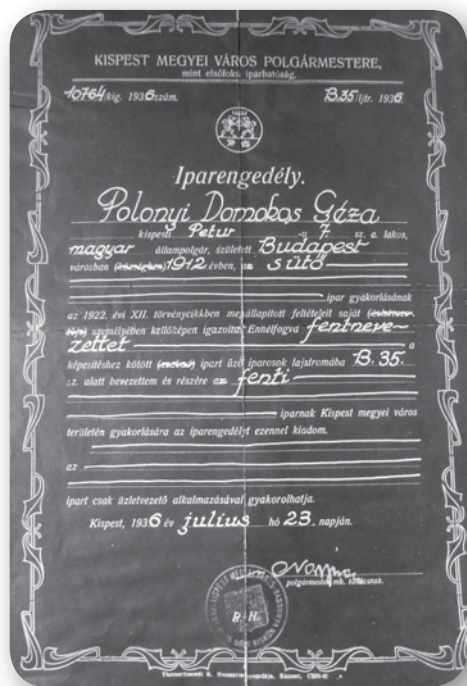 KISPEST MEGYEI VÁROS POLGÁRMESTERE,
mint elsőfokú iparhatóság.
10764/kig. 1936 szám. B.35/ljtr. 1936.
Iparengedély.
Polonyi Domokos Géza
kispesti Petur -u 7 sz. a. lakos,
magyar állampolgár, született Budapest
városban (községben) 1912 évben, a sütő
ipar gyakorlásának
az 1922. évi XII. törvénycikkben megállapított feltételeit saját
személyében kellőképen igazolta. Ennélfogva fentneve-
zettet a
képesítéshez kötött (szabad) ipart űző iparosok lajstromába B.35.
sz. alatt bevezettem és részére az fenti
iparnak Kispest megyei város
területén gyakorlására az iparengedélyt ezennel kiadom.
az
ipart csak üzletvezető alkalmazásával gyakorolhatja.
Kispest, 1936 év július hó 23. napján.
polgármester mb.
P. H.